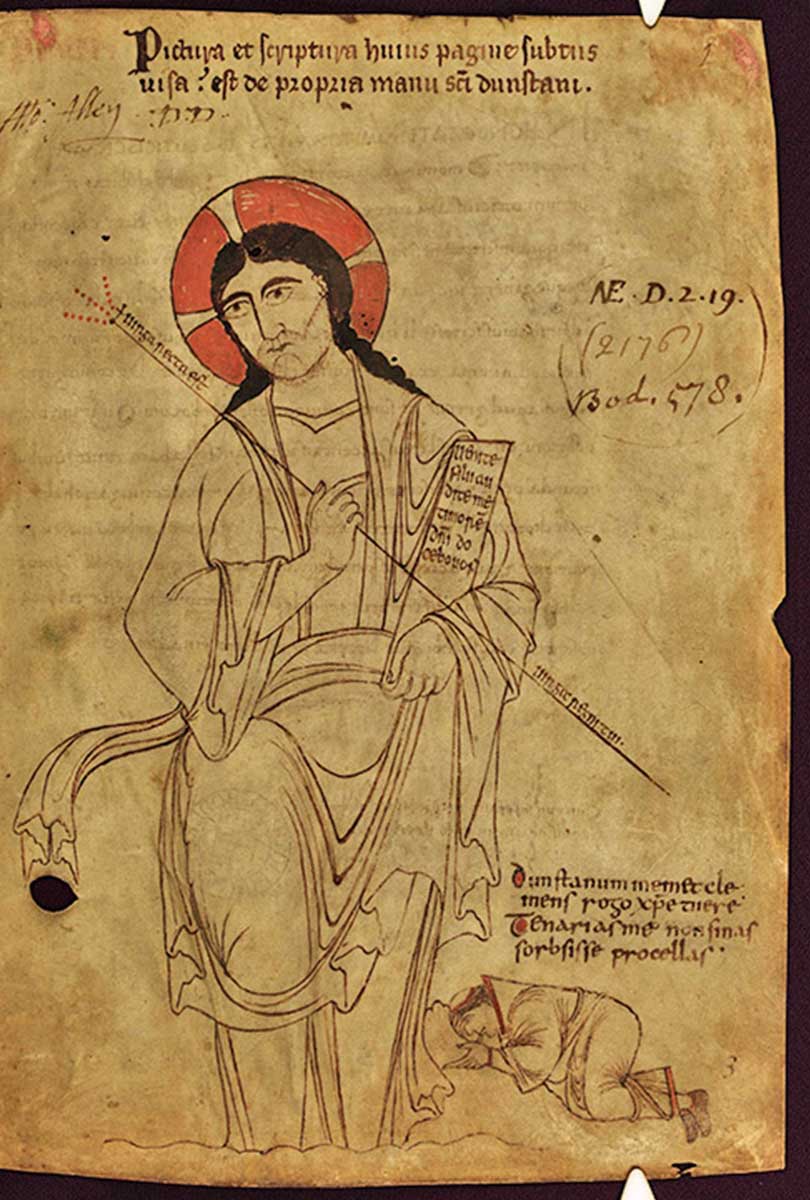 Pictura et scriptura huius pagine subtus
uisa ? est de propria manu sc̄i dunstani.
1
NE. D. 2. 19.
(2176)
Bod. 578.
Uenite
filii au
dite me
timorē
Dn̄i do
cebo uos
Dunstanum memet cle-
mens rogo xp̄e tuere
Tenarias me non sinas
sorbsisse procellas
3